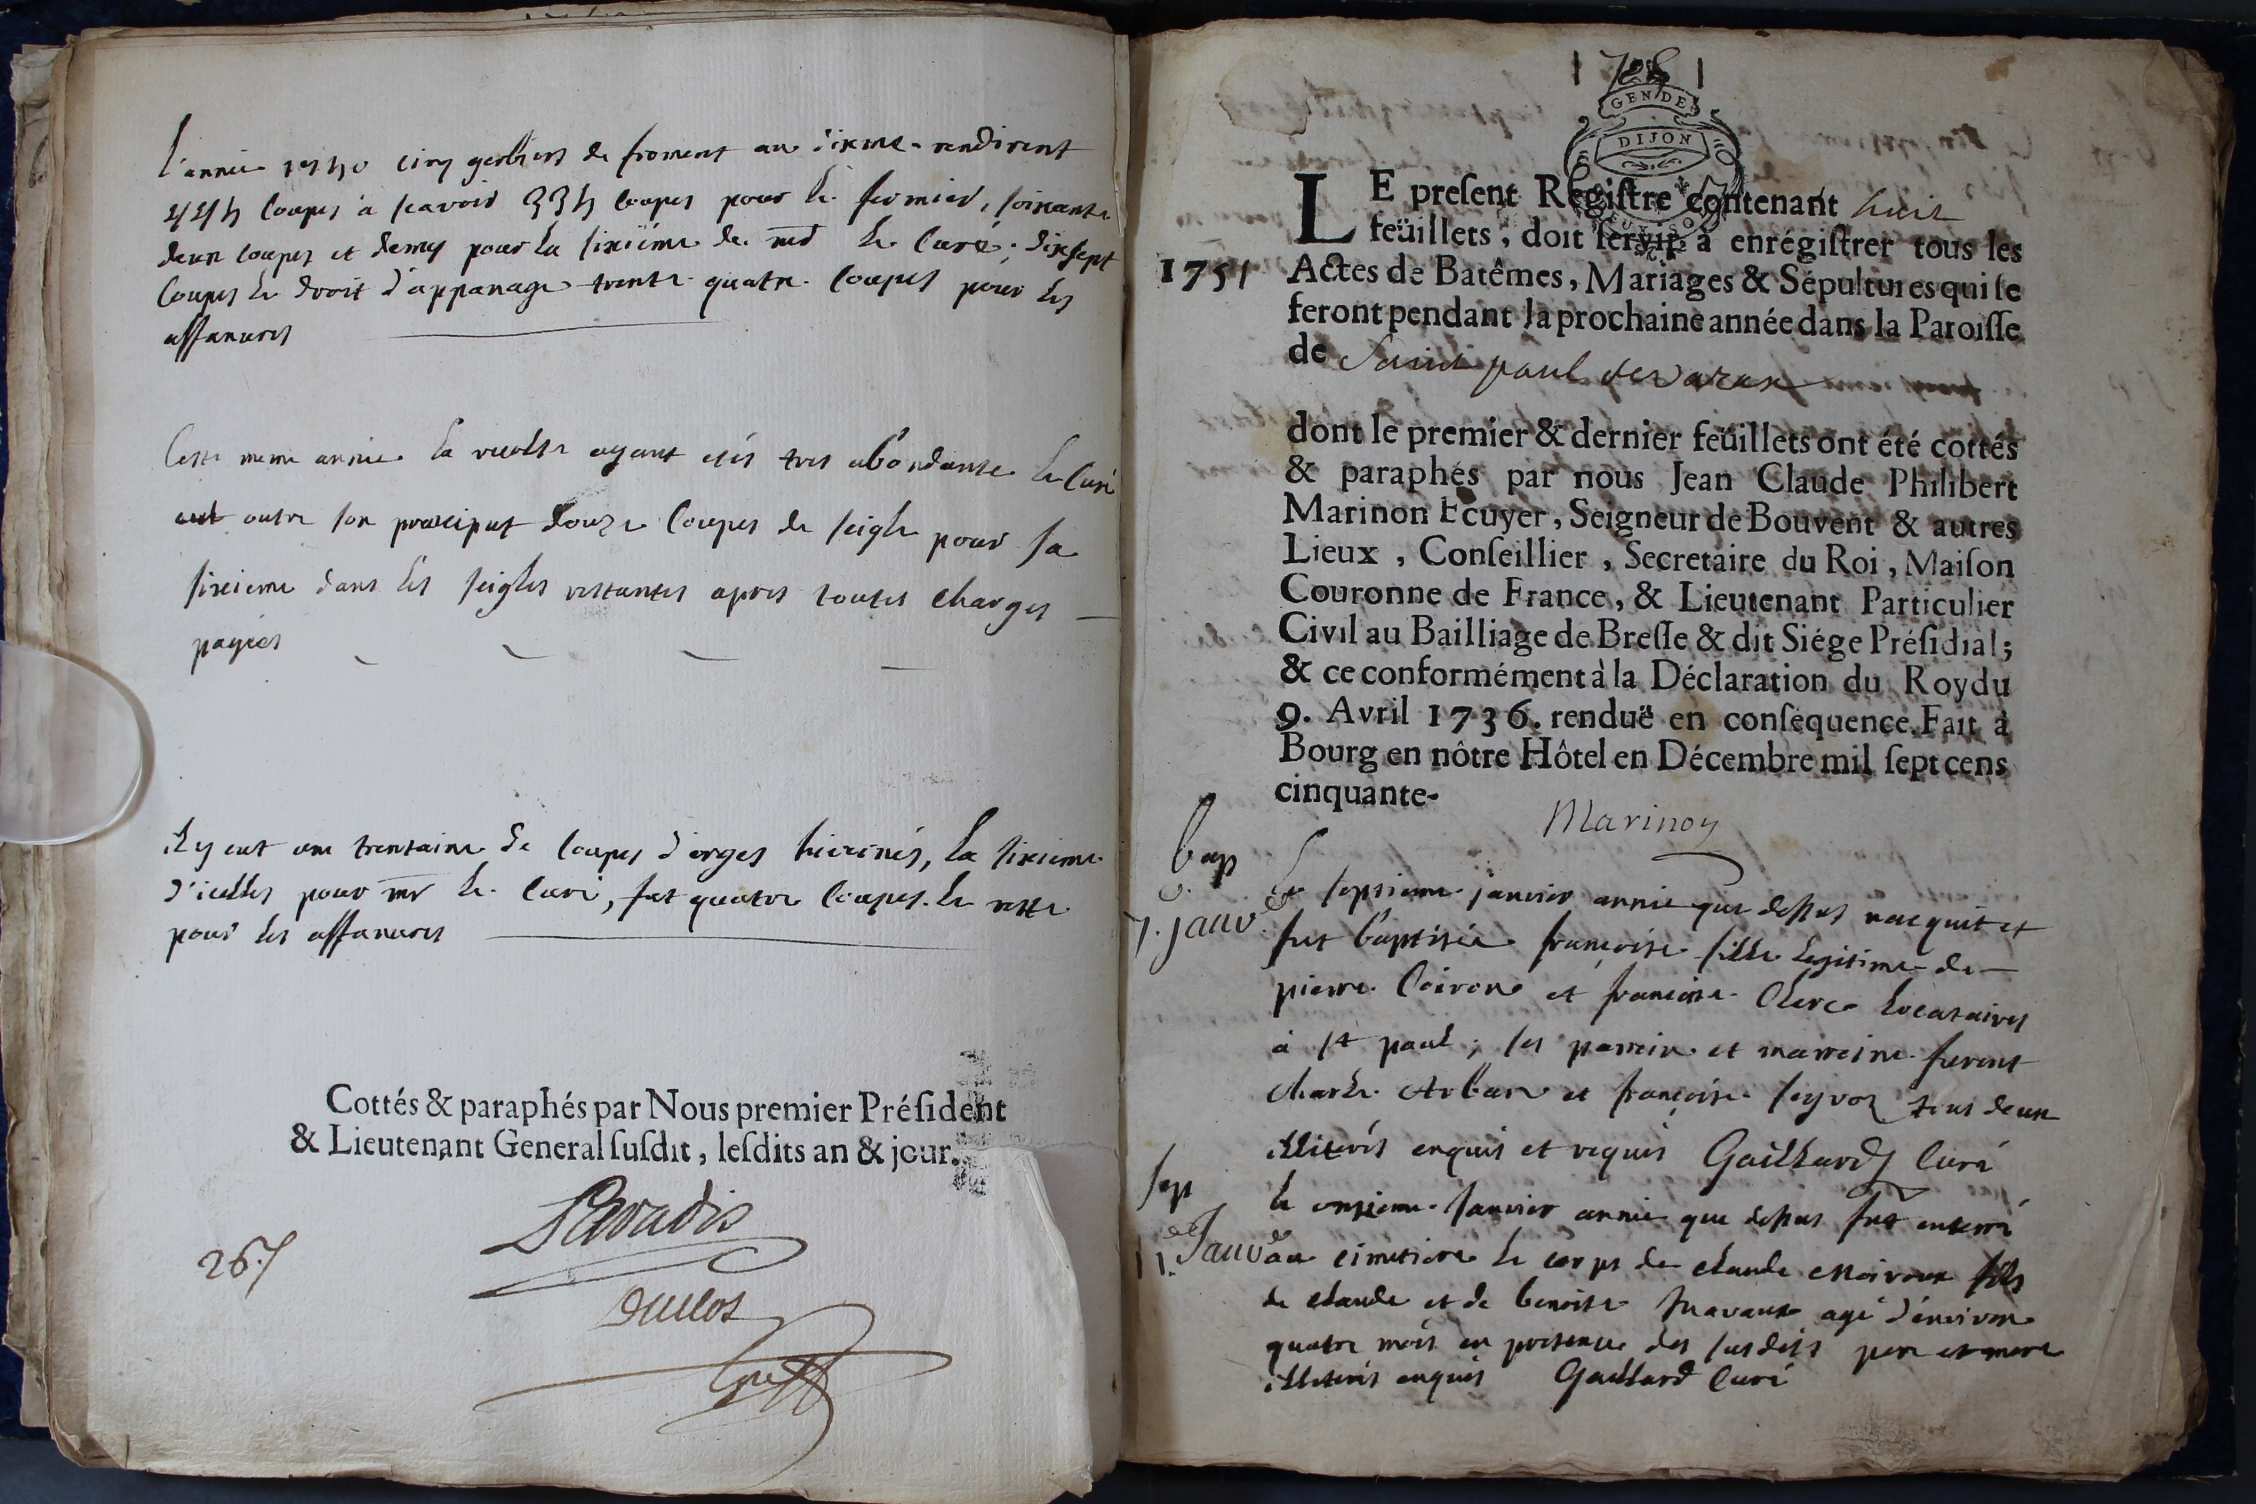 L'année 1750 cinq gerbiers de froment au dixme rendirent
coupes à scavoir 334 coupes pour le fermier, soixante
deux coupes et demy pour la sixiéme de mr le Curé; dixsept
Coupes le droit d'appanage trente quatre Coupes pour les
affanures
Cette meme année la recolte ayant etés tres abondante le Curé
eut outre son praeciput douze Coupes de seigle pour sa
sixieme dans les seigles restantes apres toutes charges
payées
il y eut une trentaine de coupes d'orges hivernés, la sixieme
d'icelles pour mr le Curé, fut quatre Coupes. le reste
pour les affanures
Cottés & paraphés par Nous premier Préſident
& Lieutenant General ſuſdit, leſdits an & jour.
Duclos
Greff
26.
GEN DE
DIJON
LE preſent Regiſtre contenant huit
feüillets, doit ſervir à enrégiſtrer tous les
1751
Actes de Batêmes, Mariages & Sépultures qui ſe
feront pendant la prochaine année dans la Paroiſſe
de Saint paul de Varax
dont le premier & dernier feüillets ont été cottés
& paraphés par nous Jean Claude Philibert
Marinon Ecuyer, Seigneur de Bouvent & autres
Lieux, Conſeillier, Secretaire du Roi, Maiſon
Couronne de France, & Lieutenant Particulier
Civil au Bailliage de Breſſe & dit Siége Préſidial;
& ce conformément à la Déclaration du Roy du
9. Avril 1736. renduë en conſequence. Fait à
Bourg en nôtre Hôtel en Décembre mil ſept cens
cinquante-
Marinon
bap
7. janv.
Le septieme janvier année que dessus nacquit et
fut baptisée françoise fille legitime de
pierre Coiron et francoise Clerc locataires
à st paul; ses parrein et marreine furent
charle Arban et françoise seyvoz tous deux
illiterés enquis et requis Gaillard Curé
sep
11. Janv.
le onzieme Janvier année que dessus fut enterré
au cimetiere le corps de claude Moiroux fils
de claude et de benoite Travaux agé d'environ
quatre mois en presence des susdits pere et mere
illiterés enquis Gaillard Curé